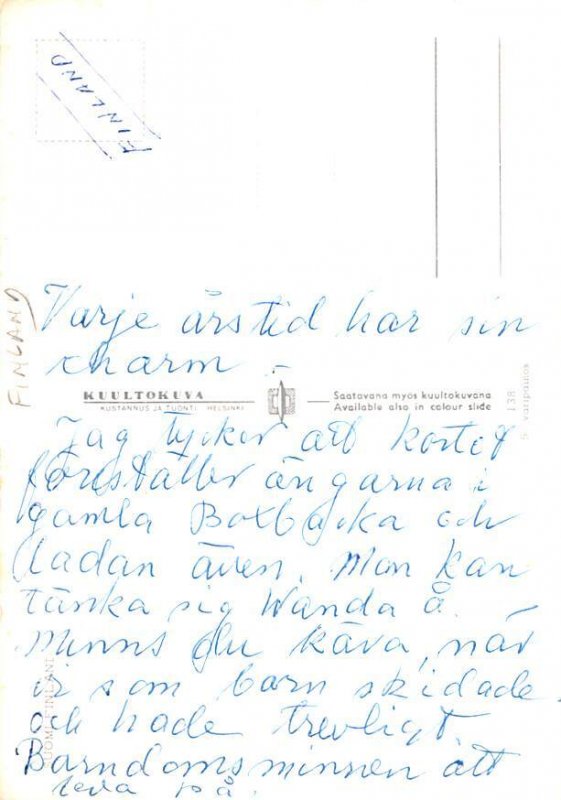 FINLAND
FINLAND
Varje årstid har sin
charm -
KUULTOKUVA
KUSTANNUS JA TUONTI HELSINKI
Saatavana myös kuultokuvana
Available also in colour slide
138
5 väripainos
Jag tycker att kortet
föreställer ängarna i
gamla Boxbacka och
ladan även. Man kan
tänka sig Wanda å.
Minns du kära, när
vi som barn skidade
och hade trevligt.
Barndomsminnen att
leva på.
SUOMI FINLAND